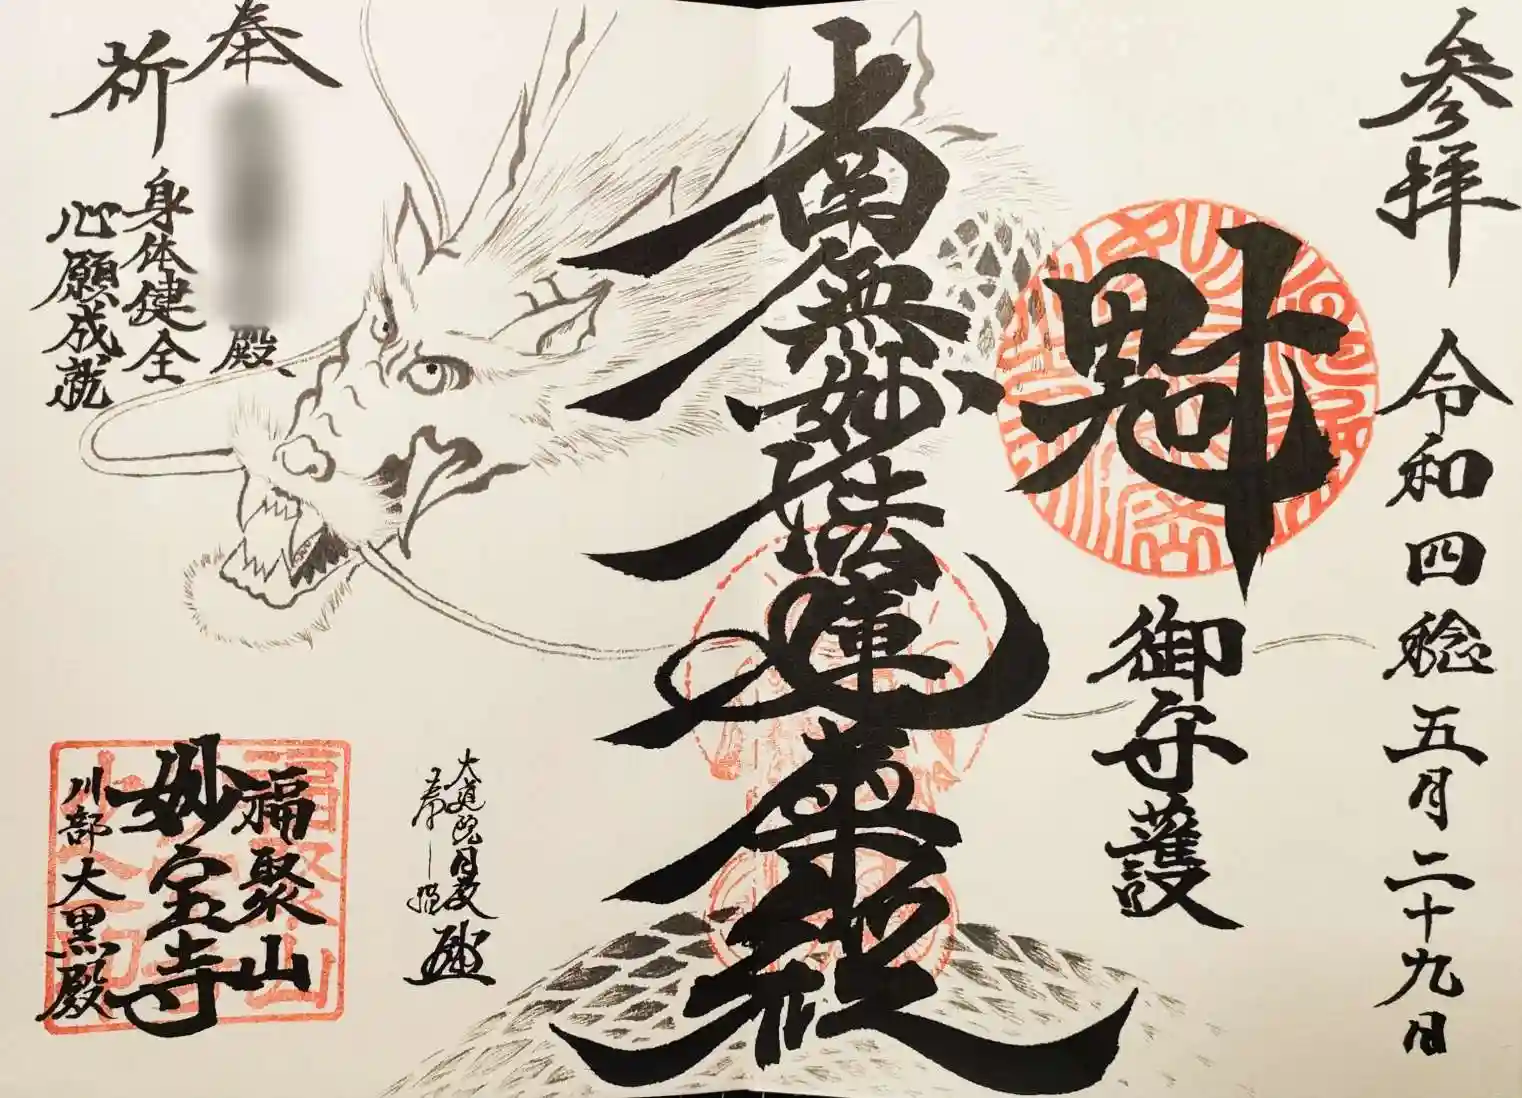 参拝 令和四稔五月二十九日
魁
御守護
南無妙法蓮華経
奉
殿
祈
身体健全
心願成就
福聚山
妙宝寺
川部大黒殿